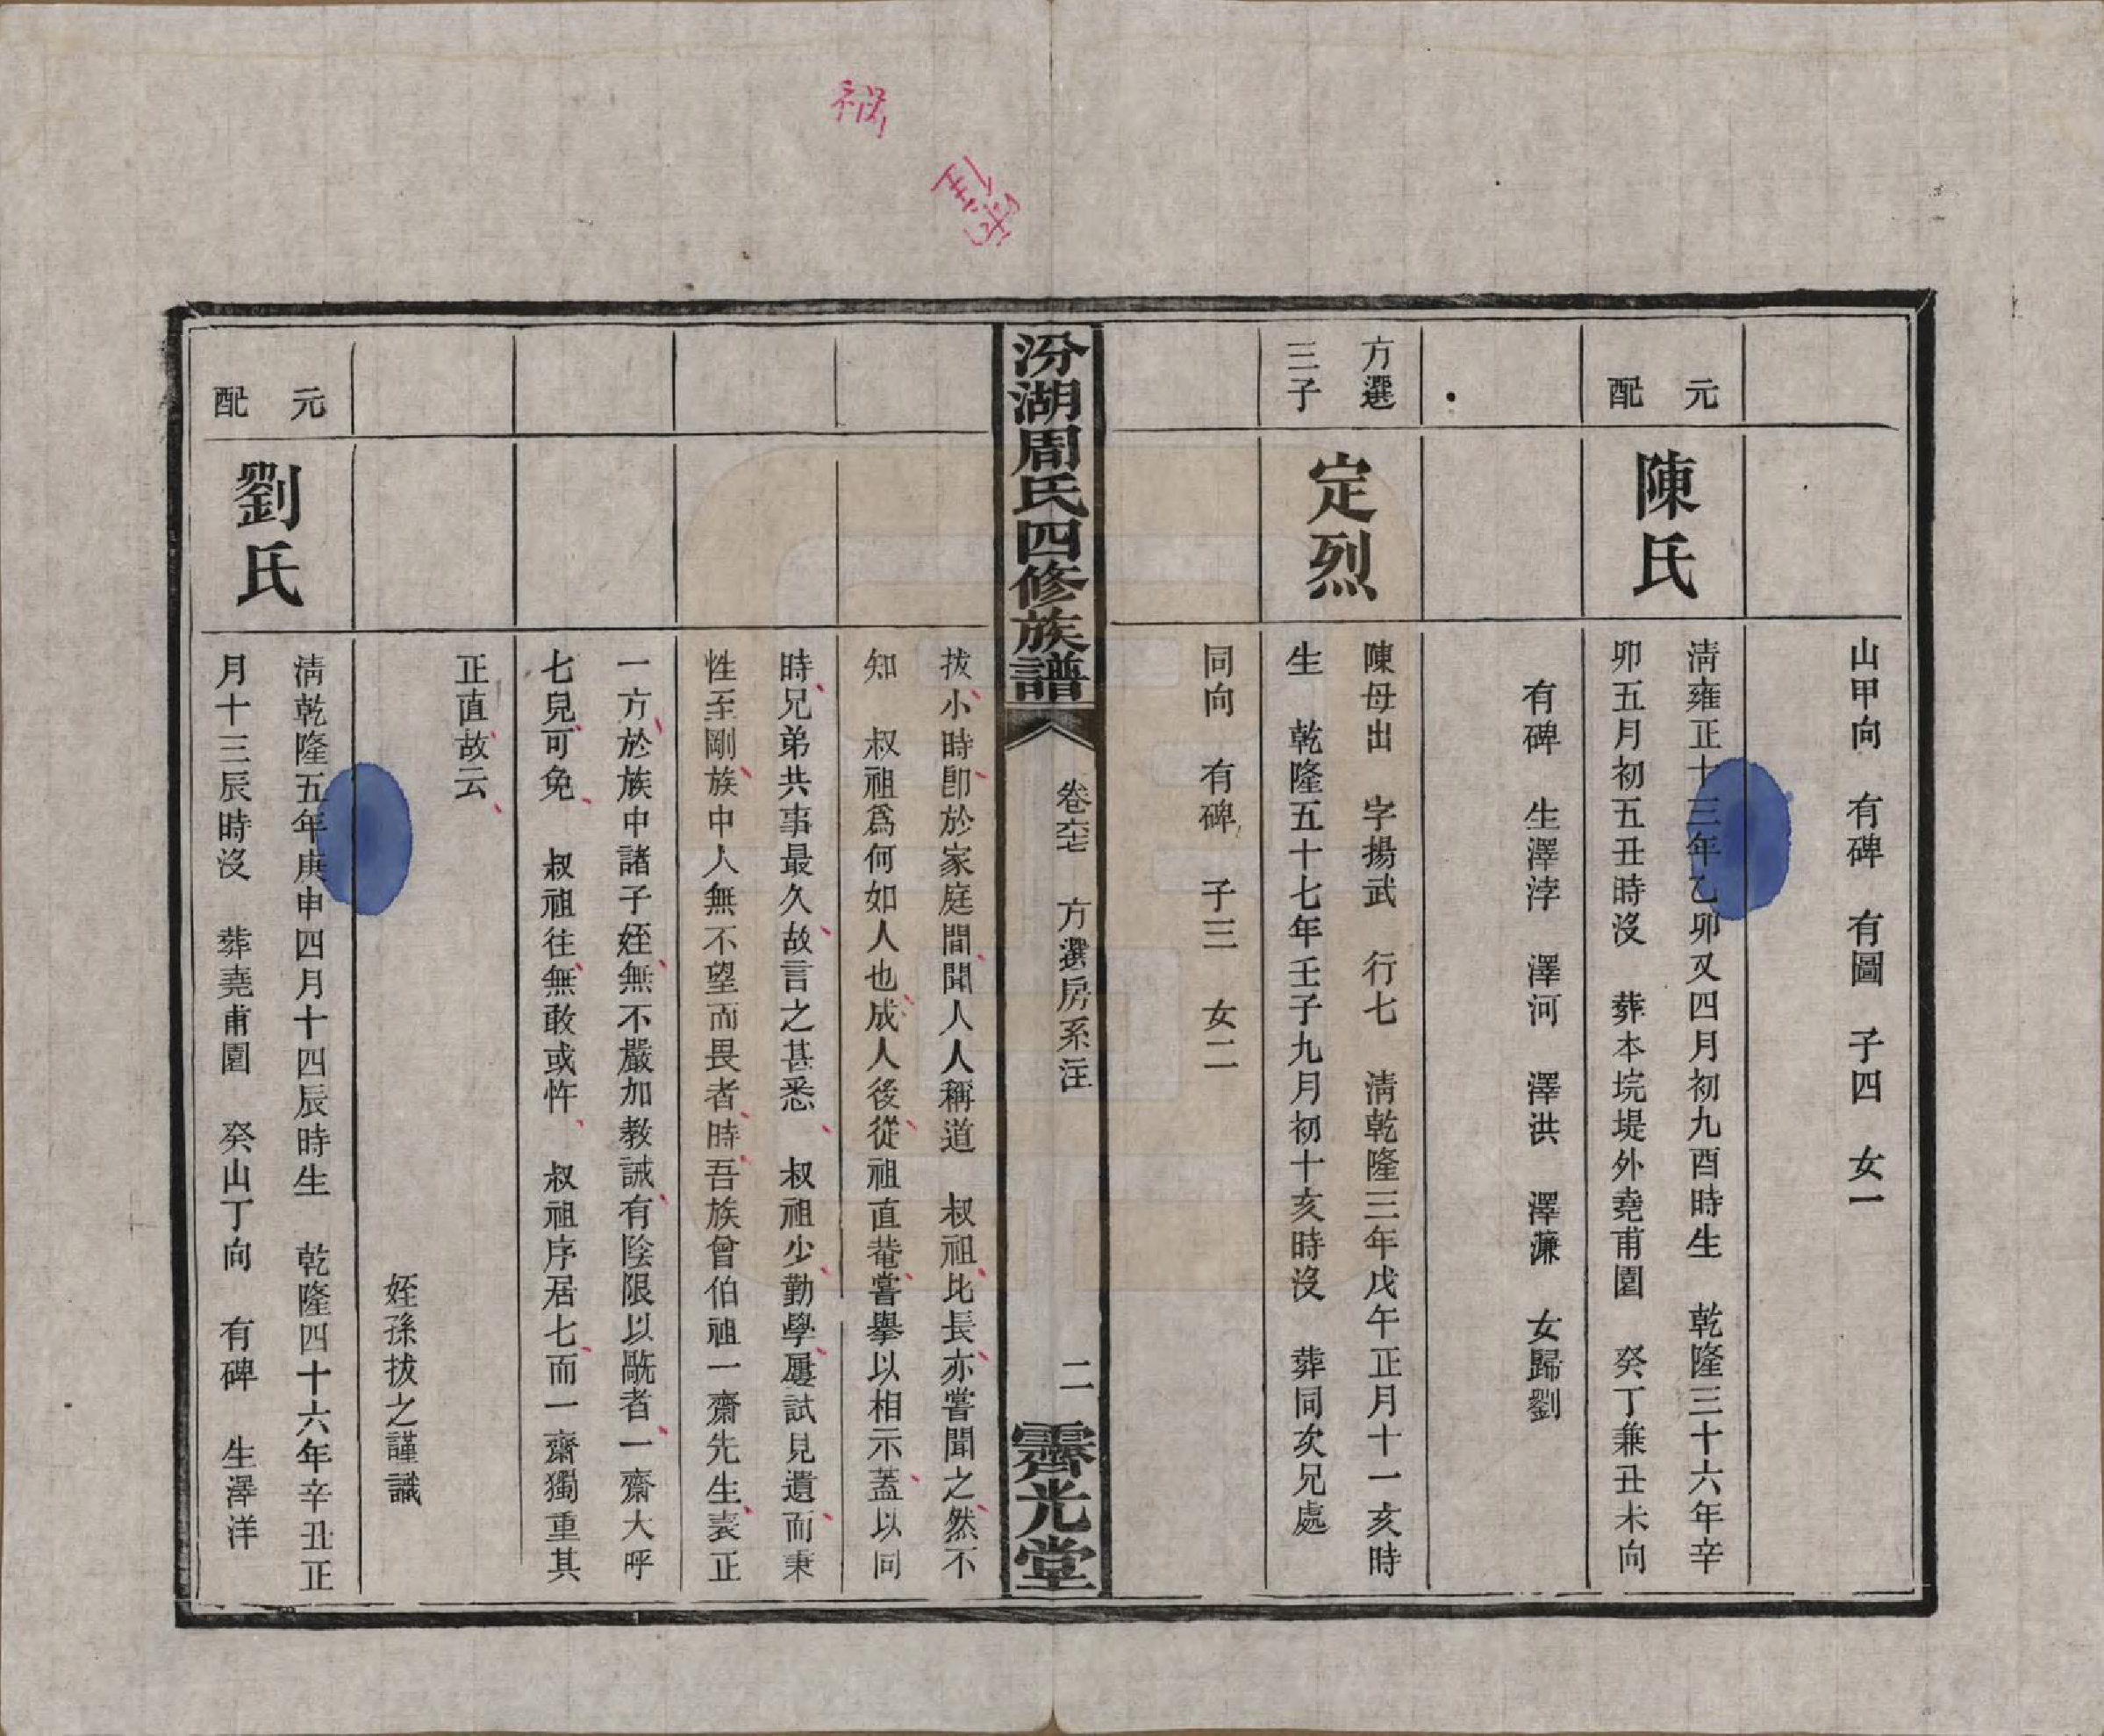 山甲向　有碑　有圖　子四　女一
元配
陳氏
淸雍正十三年乙卯又四月初九酉時生　乾隆三十六年辛
卯五月初五丑時沒　葬本垸堤外堯甫園　癸丁兼丑未向
有碑　生澤浡　澤河　澤洪　澤濂　女歸劉
方選
三子
定烈
陳母出　字揚武　行七　淸乾隆三年戊午正月十一亥時
生　乾隆五十七年壬子九月初十亥時沒　葬同次兄處
同向　有碑　子三　女二
汾湖周氏四修族譜
卷六七　方選房系注
二
霽光堂
拔小時卽於家庭間聞人人稱道　叔祖比長亦嘗聞之然不
知　叔祖爲何如人也成人後從祖直菴嘗擧以相示蓋以同
時兄弟共事最久故言之甚悉　叔祖少勤學屢試見遺而秉
性至剛族中人無不望而畏者時吾族曾伯祖一齋先生表正
一方於族中諸子姪無不嚴加教誡有陰限以甌者一齋大呼
七兒可免　叔祖往無敢或忤　叔祖序居七而一齋獨重其
正直故云
姪孫拔之謹識
元配
劉氏
淸乾隆五年庚申四月十四辰時生　乾隆四十六年辛丑正
月十三辰時沒　葬堯甫園　癸山丁向　有碑　生澤洋